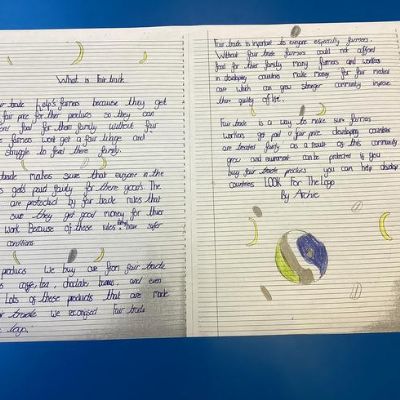 What is Fair trade.
trade helps farmers because they get
fair price for thier produce so they can
food for there family. Without fair
farmers wont get a fair wage and
struggle to feed there family.
trade makes sure that everyone in the
gets paid fairly for there goods. The
are protected by fair trade rules that
sure they get good money for thier
work. Because of these rules they have safer
conditions
products We buy are from fair trade
tea, chocolate, and even
Lots of these products that are made
trade We recognised Fair trade
logo.
Fair trade is important to everyone especially farmers.
Without fair trade farmers could not afford
food for thier family. Many farmers and workers
in developing countries make money for fair medical
care which can grow stronger community improve
their quality of life.
Fair trade is a way to make sure farmers
workers get paid a fair price. developing countries
are treated fairly as a result of this community
grow and enviroment can be protected if you
buy fair trade products you can help develop
countries LOOK For The Logo
By Archie